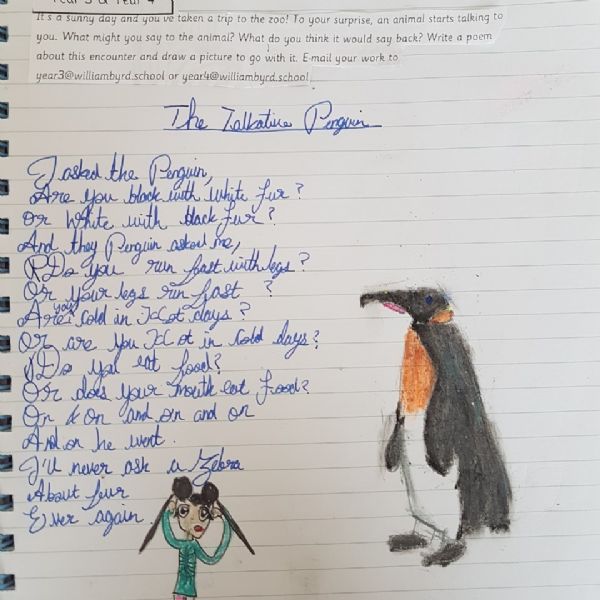 Year 3 & Year 4
It's a sunny day and you've taken a trip to the zoo! To your surprise, an animal starts talking to
you. What might you say to the animal? What do you think it would say back? Write a poem
about this encounter and draw a picture to go with it. E-mail your work to
year3@williambyrd.school or year4@williambyrd.school
The Talkative Penguin
I asked the Penguin,
Are you black with white fur?
Or white with black fur?
And they Penguin asked me,
Do you run fast with legs?
Or your legs run fast ?
Are you cold in Hot days?
Or are you Hot in Cold days?
Do you eat food?
Or does your mouth eat food?
On & on and on and on
And on he went.
I'll never ask a Zebra
About fur
Ever again.